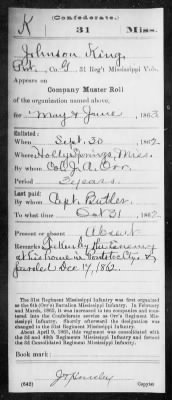 K
(Confederate.)
31 Miss.
Johnson King
Pvt., Co. G, 31 Reg't Mississippi Vols.
Appears on
Company Muster Roll
of the organization named above,
for May & June, 1863.
Enlisted:
When Sept. 30, 1862.
Where Holly Springs, Miss.
By whom Col. J. A. Orr.
Period 3 years.
Last paid:
By whom Capt. Butler.
To what time Oct 31, 1862.
Present or absent Absent
Remarks:
at his home in Pontotoc Co. &
paroled Dec 17, 1862.
The 31st Regiment Mississippi Infantry was first organized
as the 6th (Orr's) Battalion Mississippi Infantry. In February
and March, 1862, it was increased to ten companies and mustered
into the Confederate service as Orr's Regiment Mississippi
Infantry. Shortly afterward the designation was
changed to the 31st Regiment Mississippi Infantry.
About April 9, 1865, this regiment was consolidated with
the 3d and 40th Regiments Mississippi Infantry and formed
the 3d Consolidated Regiment Mississippi Infantry.
Book mark:
(642)
Copyist.